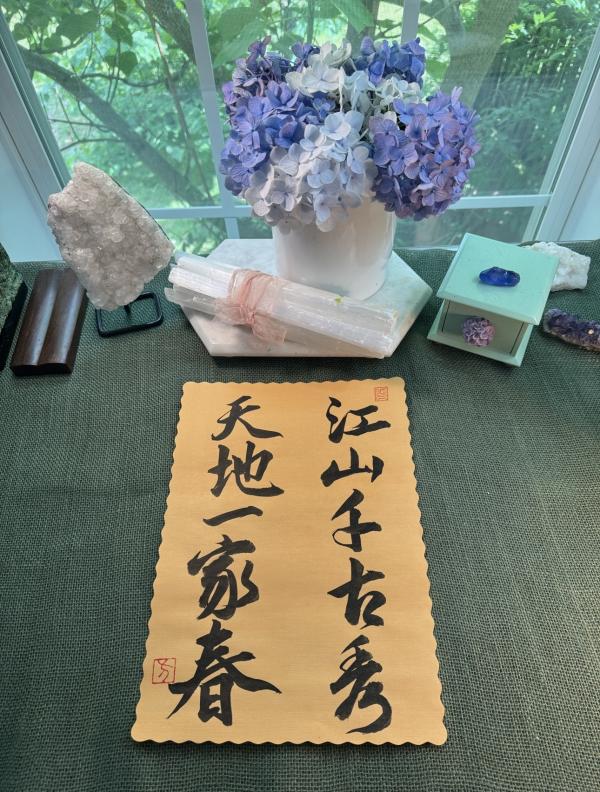 江山千古秀
天地一家春